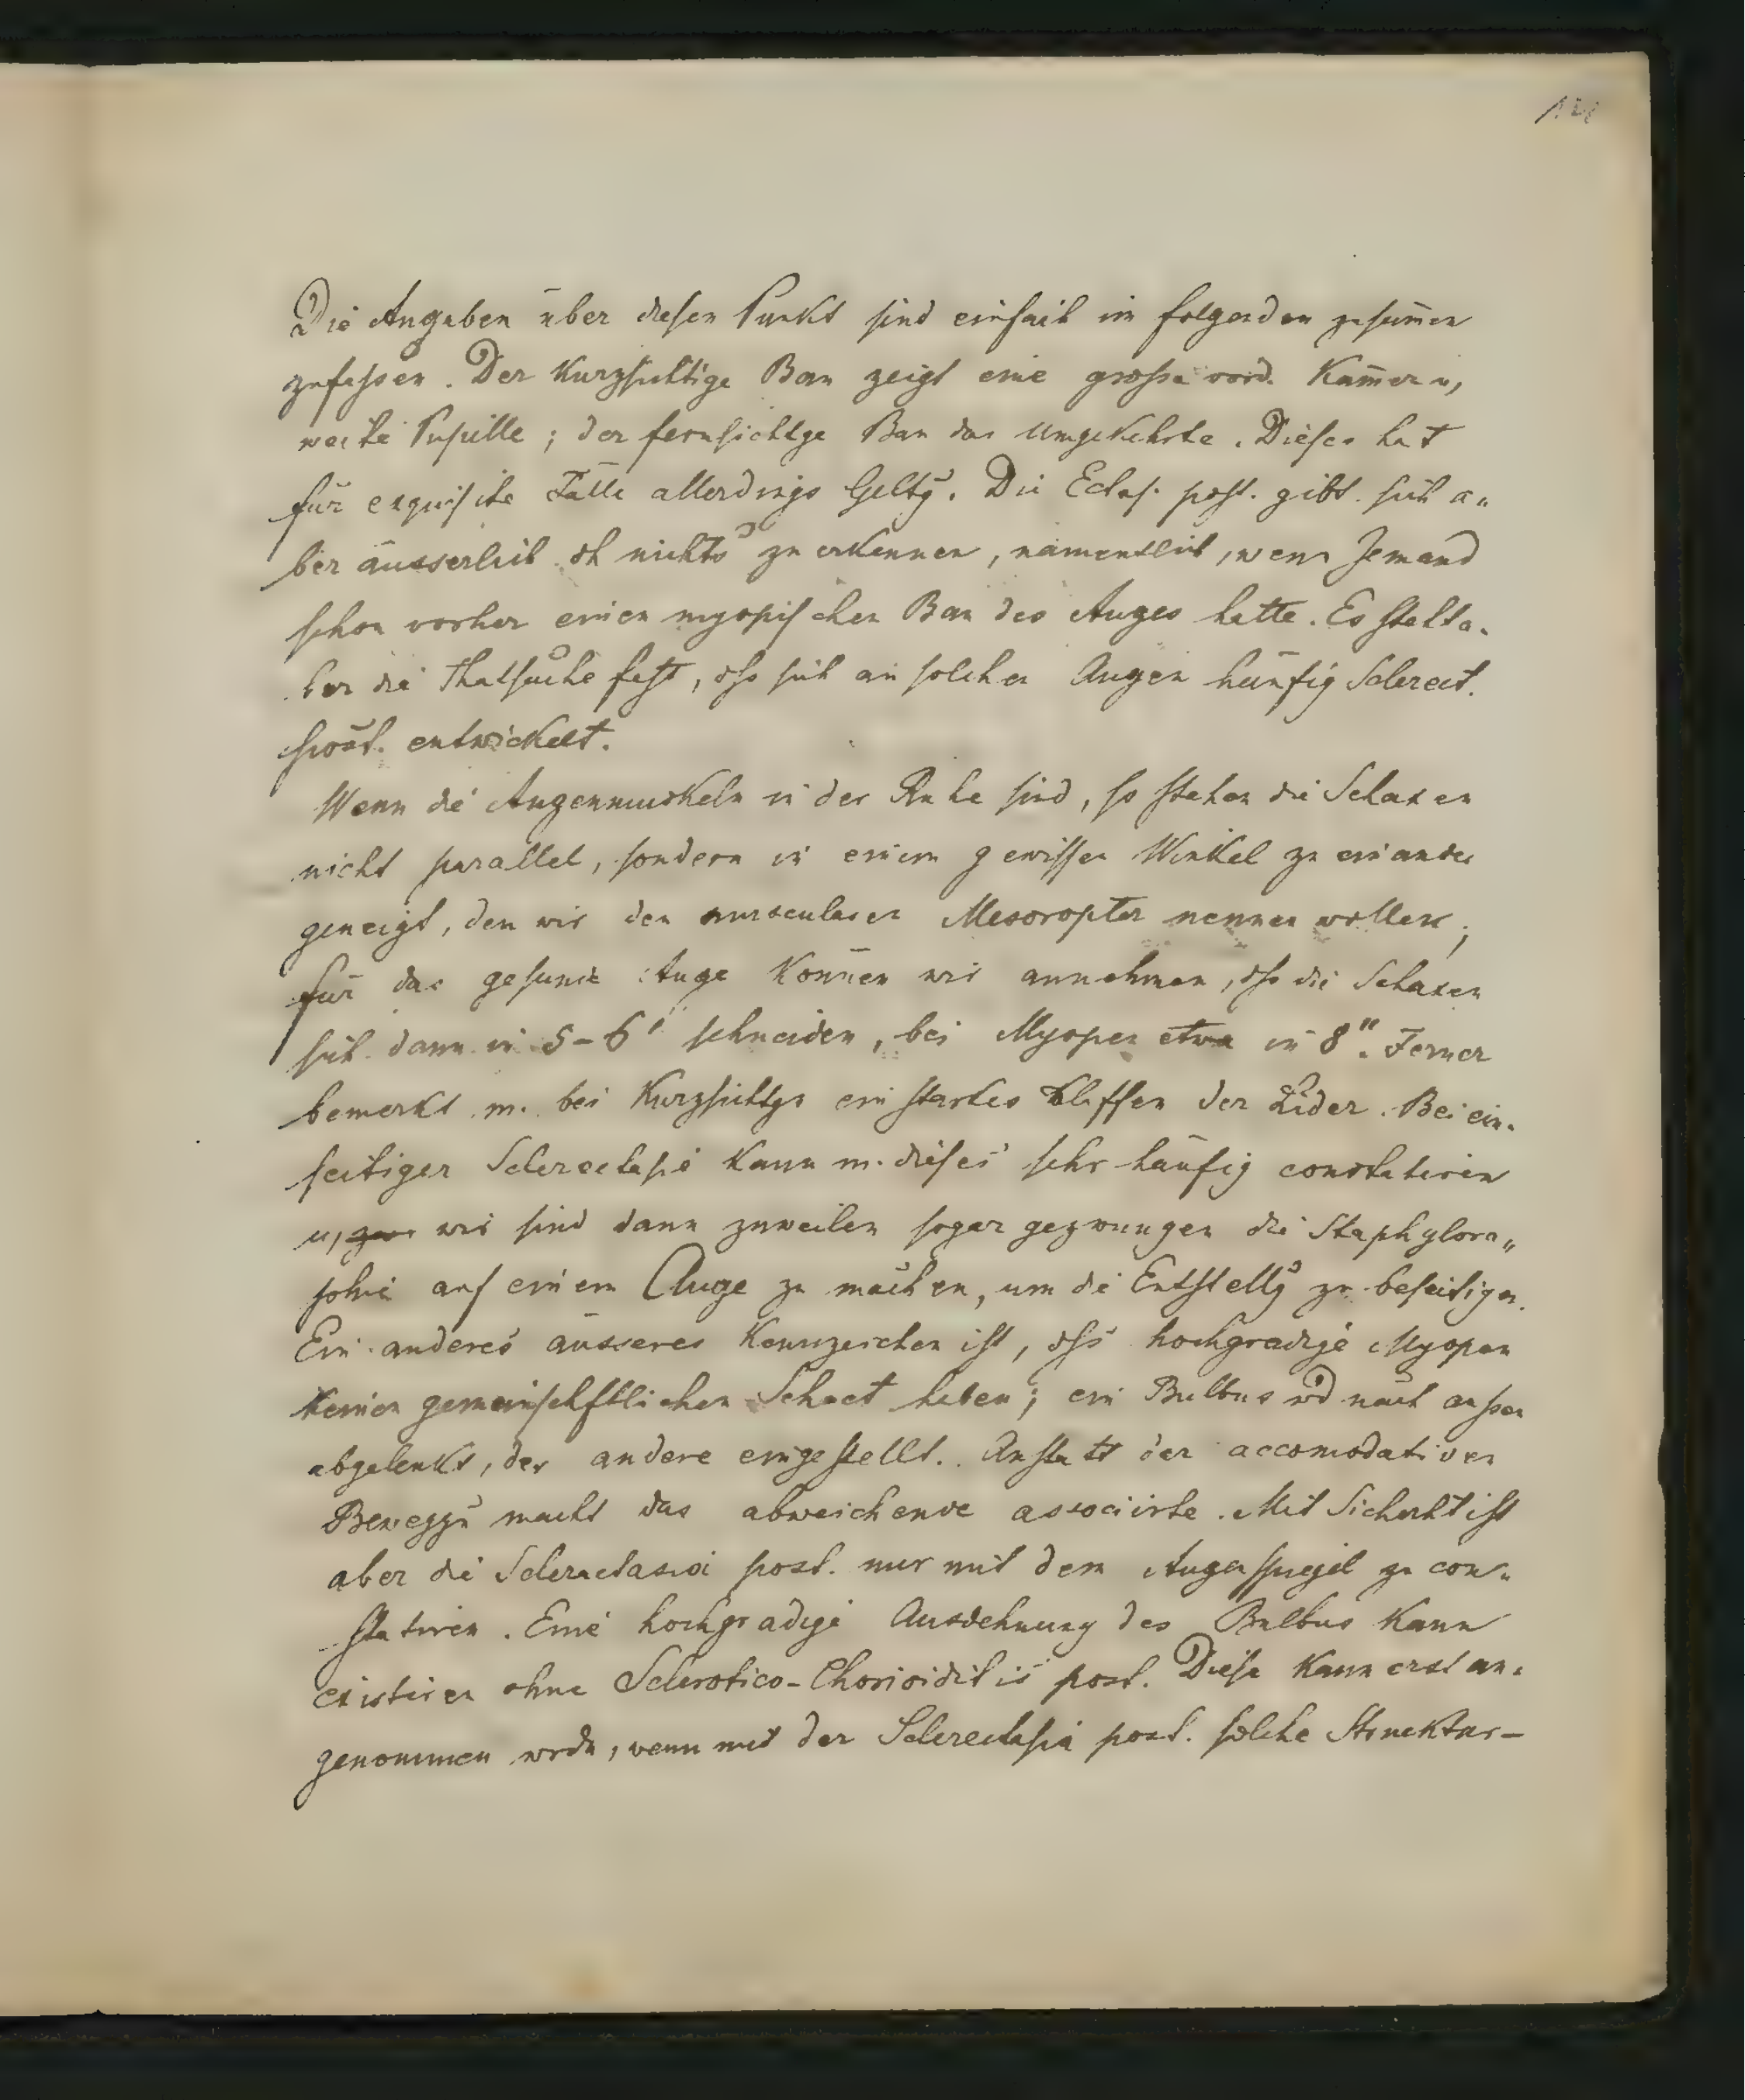 Die Angaben über diesen Punkt sind einfach im folgenden zusam̄en
zufassen. Der Kurzsichtige Bau zeigt eine grosse vord. Kam̄ern,
weite Pupille; der fernsichtge Bau das Umgekehrte. Dieses hat
für exquisite Fälle allerdings Geltg. Die Ectas. post. gibt sich a„
ber äusserlich dch nichts zu erkennen, namentlich, wenn Jemand
schon vorher einen myopischen Bau des Auges hatte. Es steht a.
ber die Thatsache fest, dss sich an solchen Augen häufig Sclerect.
post. entwickelt.
Wenn die Augenmuskeln in der Ruhe sind, so stehen die Sehaxen
nicht parallel, sondern in einem gewissen Winkel zu einander
geneigt, den wir den musculären Mesoropter nennen wollen;
für das gesunde Auge können wir annehmen, dss die Sehaxen
sich dann in 5-6' schneiden, bei Myopen etwa in 8". Ferner
bemerkt m. bei Kurzsichtgn ein starkes Klaffen der Lider. Bei ein.
seitiger Sclerectasie kann m. dieses sehr häufig constatiren
u, zwar wir sind dann zuweilen sogar gezwungen die Staphylora„
phie auf einem Auge zu machen, um die Entstellg zu beseitigen.
Ein anderes äusseres Kennzeichen ist, dss hochgradige Myopen
keinen gemeinschftlichen Sehact haben; ein Bulbus wd nach aussen
abgelenkt, der andere eingestellt. Anstatt der accomodativen
Beweggn macht das abweichende associirte. Mit Sicherht ist
aber die Sclerectasia post. nur mit dem Augenspiegel zu con„
statiren. Eine hochgradige Ausdehnung des Bulbus kann
existiren ohne Sclerotico-Chorioiditis post. Diese kann erst an.
genommen wrdn, wenn mit der Sclerectasia post. solche Struktur-